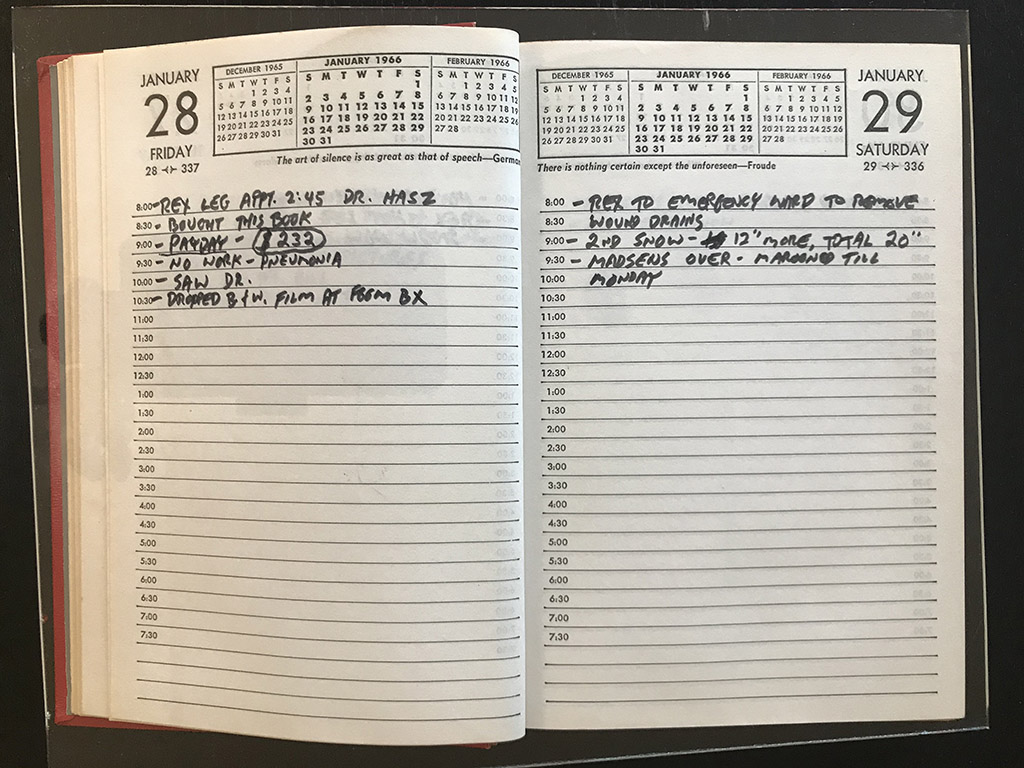 JANUARY
28
FRIDAY
28 ⊰⊱ 337
DECEMBER 1965
S M T W T F S
1 2 3 4
5 6 7 8 9 10 11
12 13 14 15 16 17 18
19 20 21 22 23 24 25
26 27 28 29 30 31
JANUARY 1966
S M T W T F S
1
2 3 4 5 6 7 8
9 10 11 12 13 14 15
16 17 18 19 20 21 22
23 24 25 26 27 28 29
30 31
FEBRUARY 1966
S M T W T F S
1 2 3 4 5
6 7 8 9 10 11 12
13 14 15 16 17 18 19
20 21 22 23 24 25
27 28
The art of silence is as great as that of speech—German
8:00 - REX LEG APPT. 2:45 DR. HASZ
8:30 - BOUGHT THIS BOOK
9:00 - PAYDAY - $232
9:30 - NO WORK - PNEUMONIA
10:00 - SAW DR.
10:30 - DROPPED B+W. FILM AT FGGM BX
11:00
11:30
12:00
12:30
1:00
1:30
2:00
2:30
3:00
3:30
4:00
4:30
5:00
5:30
6:00
6:30
7:00
7:30
DECEMBER 1965
S M T W T F S
1 2 3 4
5 6 7 8 9 10 11
12 13 14 15 16 17 18
19 20 21 22 23 24 25
26 27 28 29 30 31
JANUARY 1966
S M T W T F S
1
2 3 4 5 6 7 8
9 10 11 12 13 14 15
16 17 18 19 20 21 22
23 24 25 26 27 28 29
30 31
FEBRUARY 1966
S M T W T F S
1 2 3 4 5
6 7 8 9 10 11 12
13 14 15 16 17 18 19
20 21 22 23 24 25 26
27 28
JANUARY
29
SATURDAY
29 ⊰⊱ 336
There is nothing certain except the unforeseen—Froude
8:00 - REX TO EMERGENCY WARD TO REMOVE
8:30 WOUND DRAINS
9:00 - 2ND SNOW - 12" MORE, TOTAL 20"
9:30 - MADSENS OVER - MAROONED TILL
10:00 MONDAY
10:30
11:00
11:30
12:00
12:30
1:00
1:30
2:00
2:30
3:00
3:30
4:00
4:30
5:00
5:30
6:00
6:30
7:00
7:30